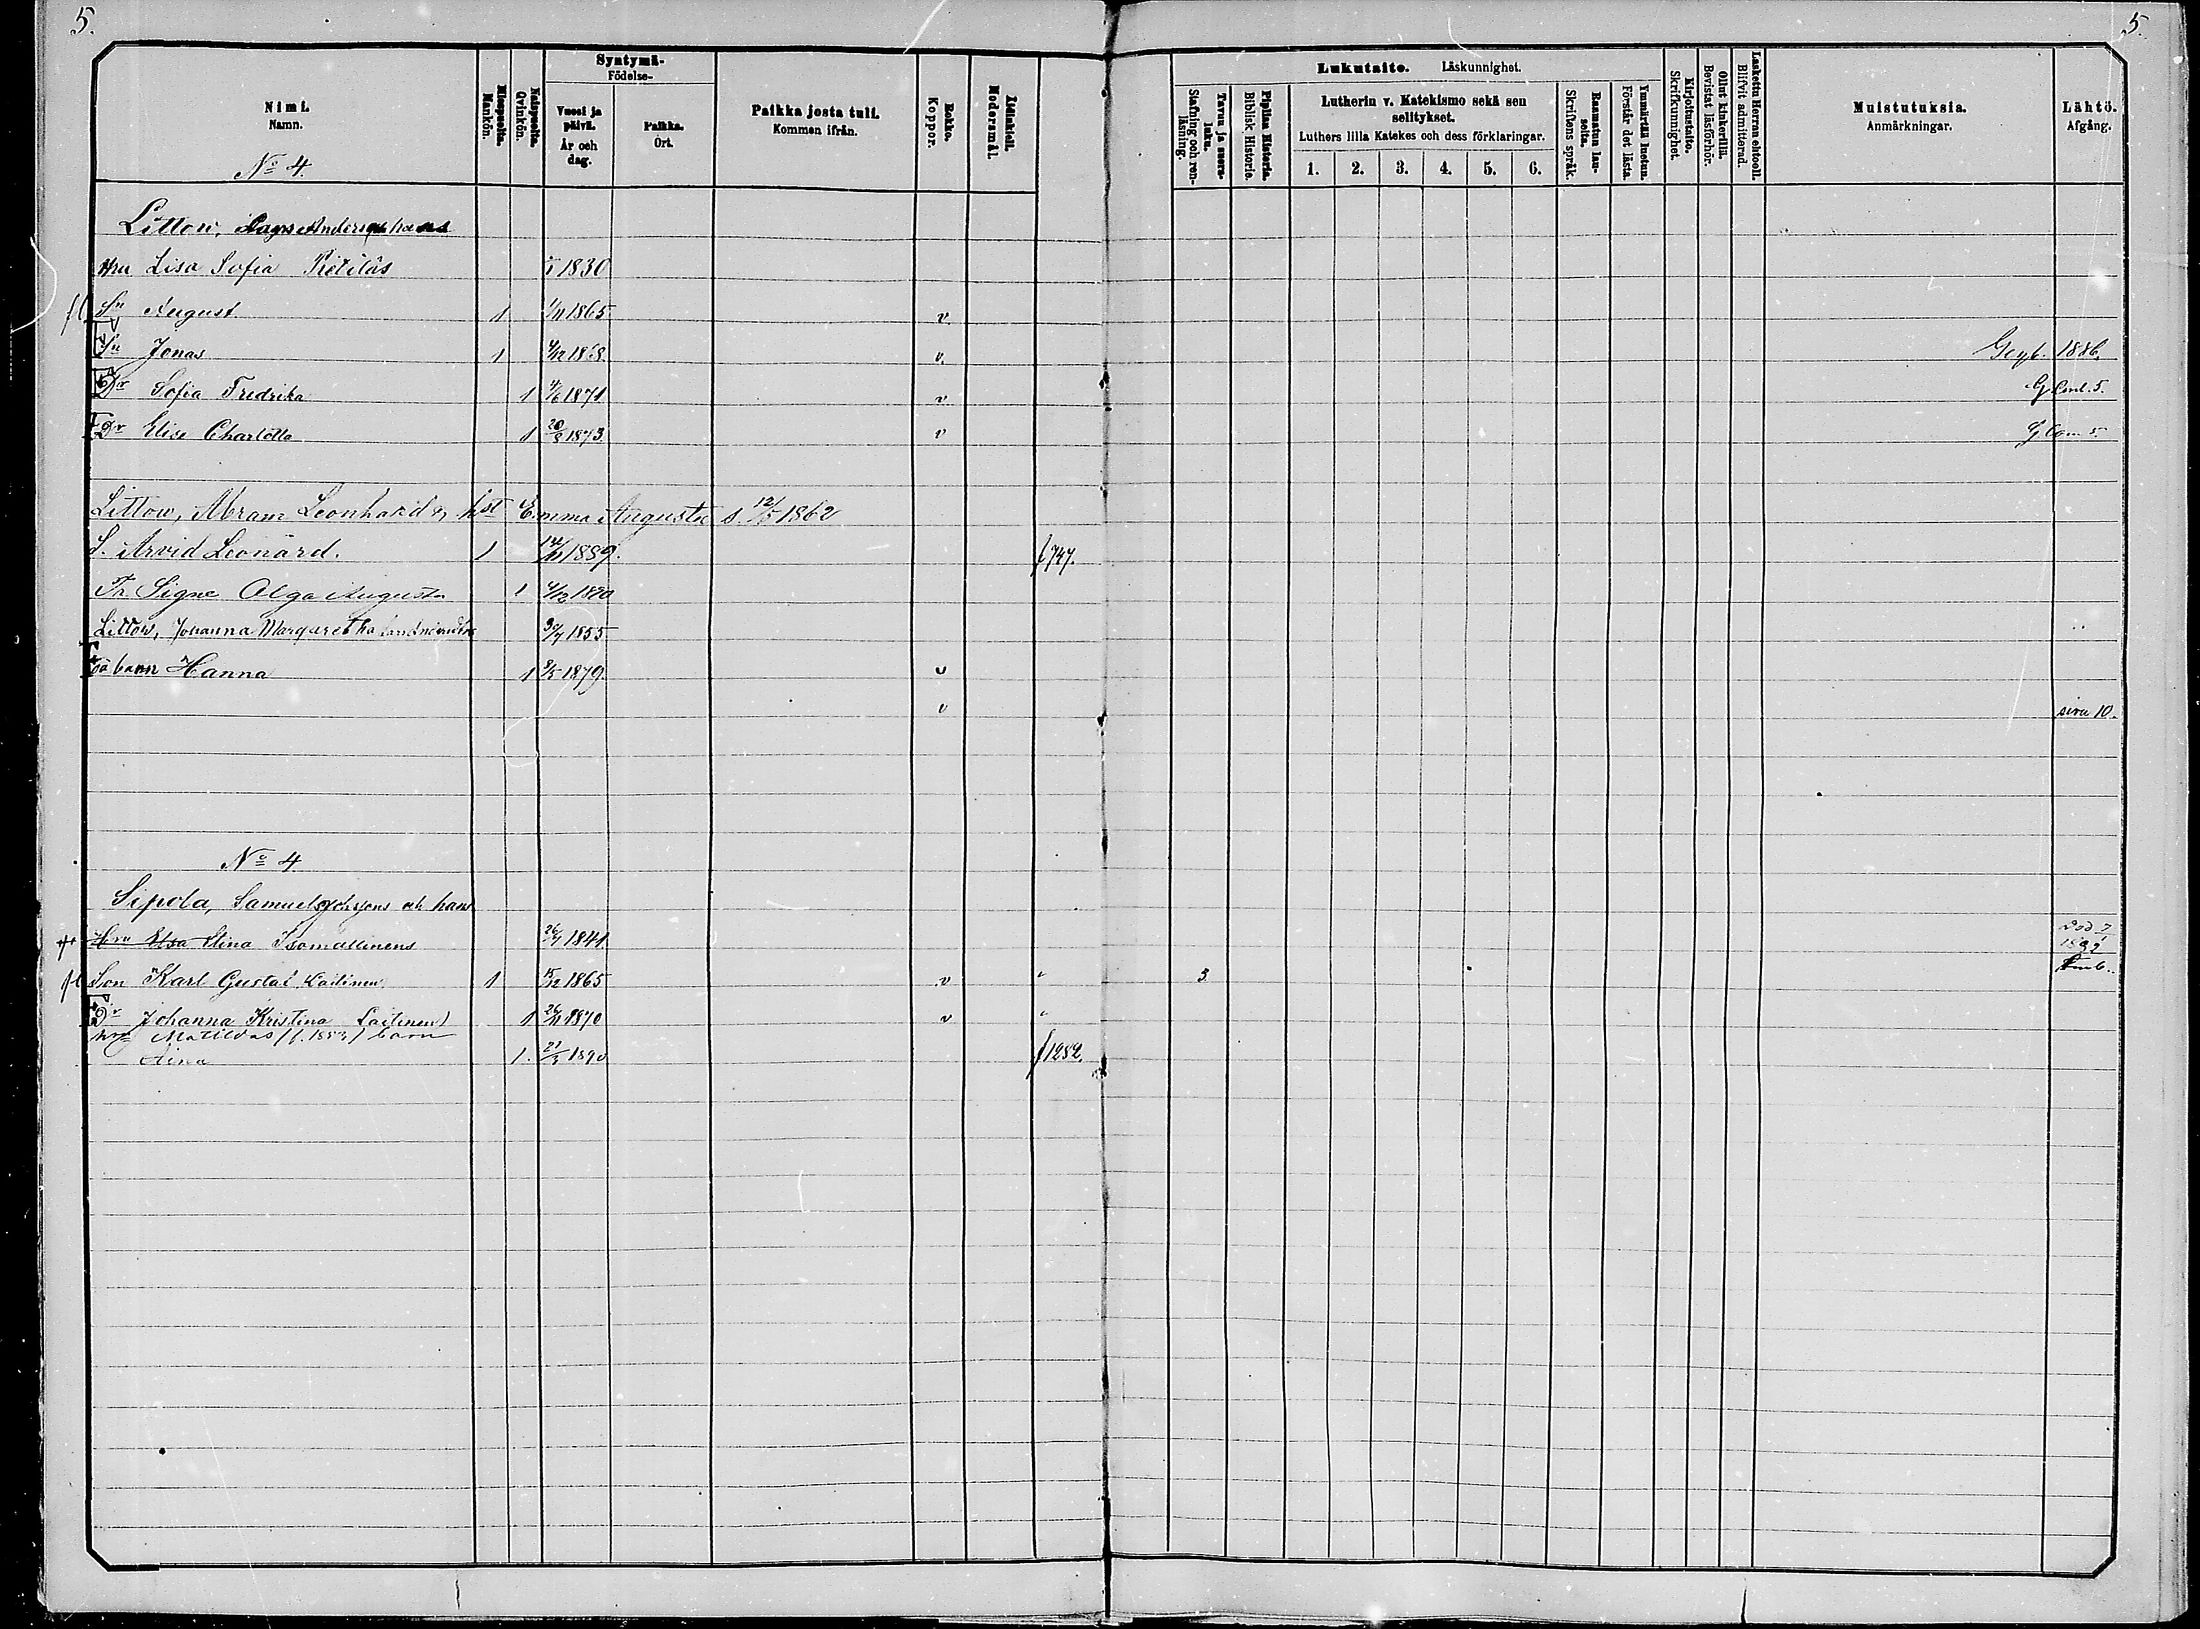 5.
5.
Nimi.
Namn.
Miespuolta.
Mankön.
Naispuolta.
Qvinkön.
Syntymä-
Födelse-
Vuosi ja päivä.
År och dag.
Paikka.
Ort.
Paikka josta tuli.
Kommen ifrån.
Rokko.
Koppor.
Äidinkieli.
Modersmål.
Lukutaito. Läskunnighet.
Tavuu ja suora-luku.
Stafning och ren-läsning.
Piplian Historia.
Biblisk Historie.
Lutherin v. Katekismo sekä sen selitykset.
Luthers lilla Katekes och dess förklaringar.
1. 2. 3. 4. 5. 6.
Raamatun lau-seita.
Skriftens språk.
Ymmärtää luetun.
Förstår det lästa.
Kirjoitustaito.
Skrifkunnighet.
Ollut kinkerillä.
Bevistat läsförhör.
Laskettu Herran ehtooll.
Blifvit admitterad.
Muistutuksia.
Anmärkningar.
Lähtö.
Afgång.
No 4.
Littow, Anders hans
Hru Lisa Sofia Pietiläs 1830
Sn August 1 1/11 1865 v.
Sn Jonas 1 4/12 v. 1886.
Dr Sofia Fredrika 1 4/6 1871 v
Dr Elise Charlotta 1 20/8 1873. v
Littow, Abram Leonhards hst Emma Augusta s. 12/5 1862
S. Arvid Leonard. 1 1889. f 747.
Tr Signe Olga Augusta 1 4/12 1890
Littow, Johanna Margaretha 30/7 1855
oä barn Hanna 1 1879. v
v sivu 10.
No 4
Sipola, Samuel och hans
Hru Elsa Stina Isomallinens 26/4 1841. Död
Son Karl Gustaf Laitinen 1 15/12 1865 v " 3
Dr Johanna Kristina Laitinen 1 26/11 1870 v "
Matildas (f. 1853) barn
Aina 1. 1890 f 1252.